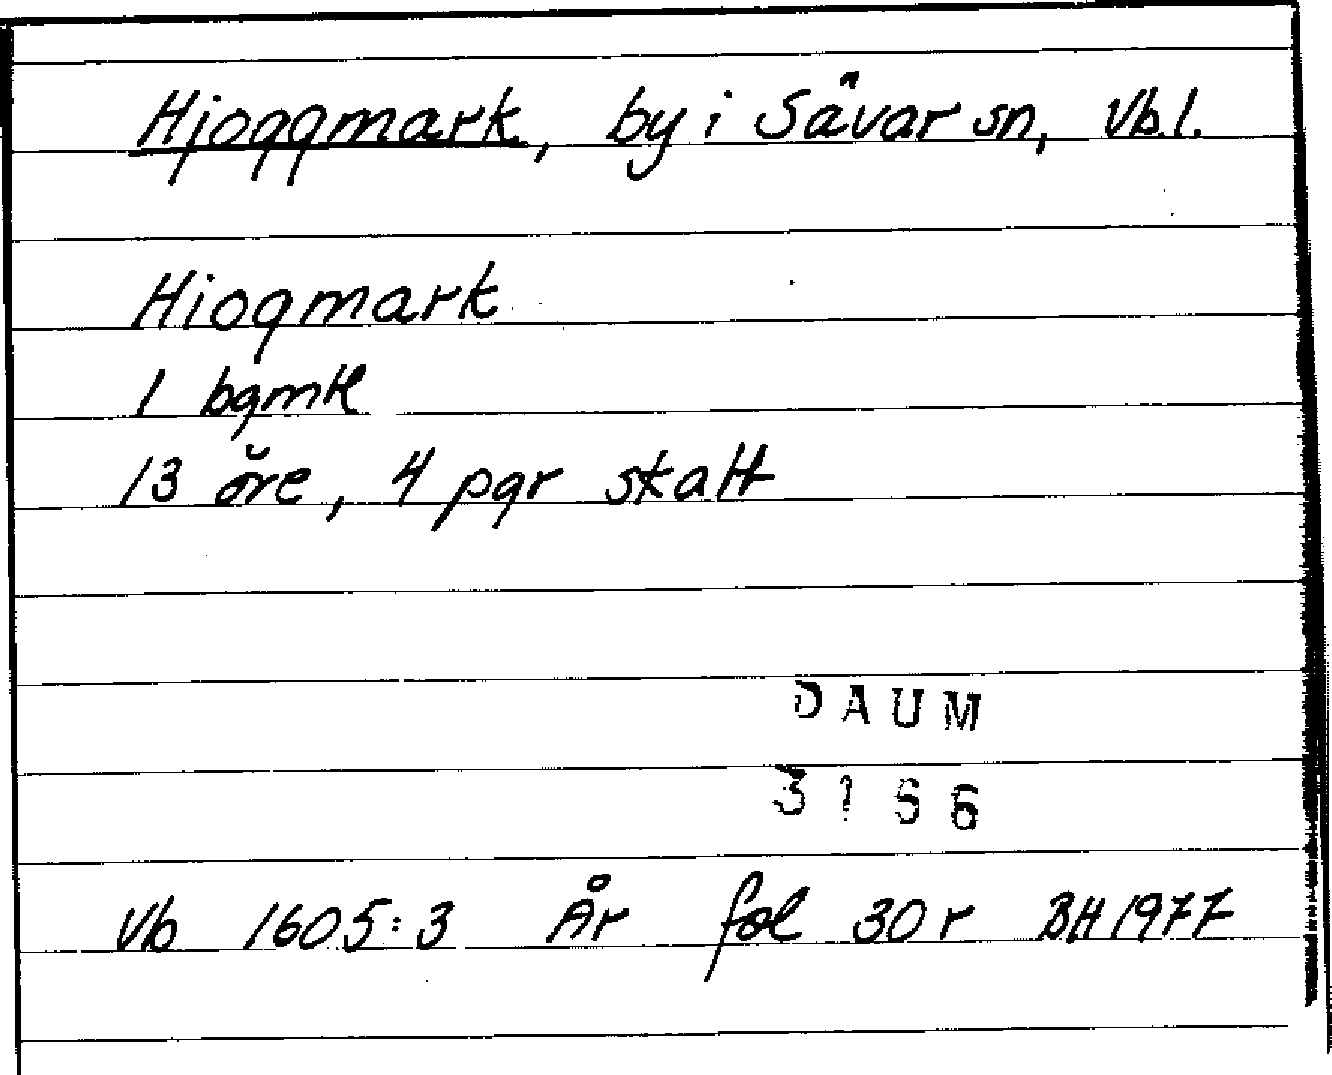 Hjoggmark, by i Sävar sn, Vb.l.
Hiogmark
1 bgmH
13 öre, 4 pgr skatt
DAUM
3156
Vb 1605:3 År fol 30r BH 1977